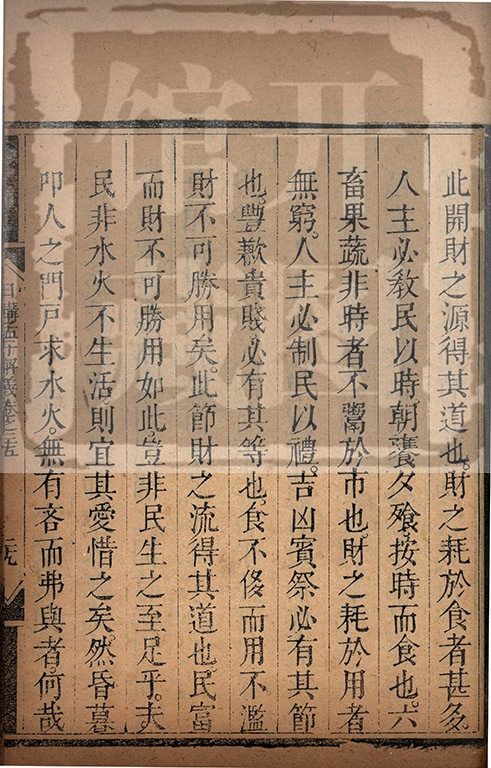 此開財之源得其道也。財之耗於食者甚多。
人主必敎民以時朝饔夕飱按時而食也。六
畜果蔬非時者不鬻於市也。財之耗於用者
無窮。人主必制民以禮。吉凶賓祭必有其節
也。豐歉貴賤必有其等也。食不侈而用不濫
財不可勝用矣。此節財之流得其道也民富
而財不可勝用如此。豈非民生之至足乎。夫
民非水火不生活則宜其愛惜之矣。然昏暮
叩人之門戶求水火。無有吝而弗與者。何哉
日講孟子解義卷之二十五